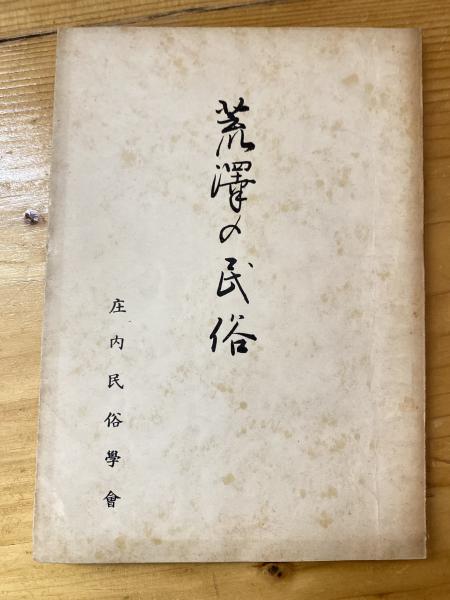 荒澤の民俗
庄内民俗學會